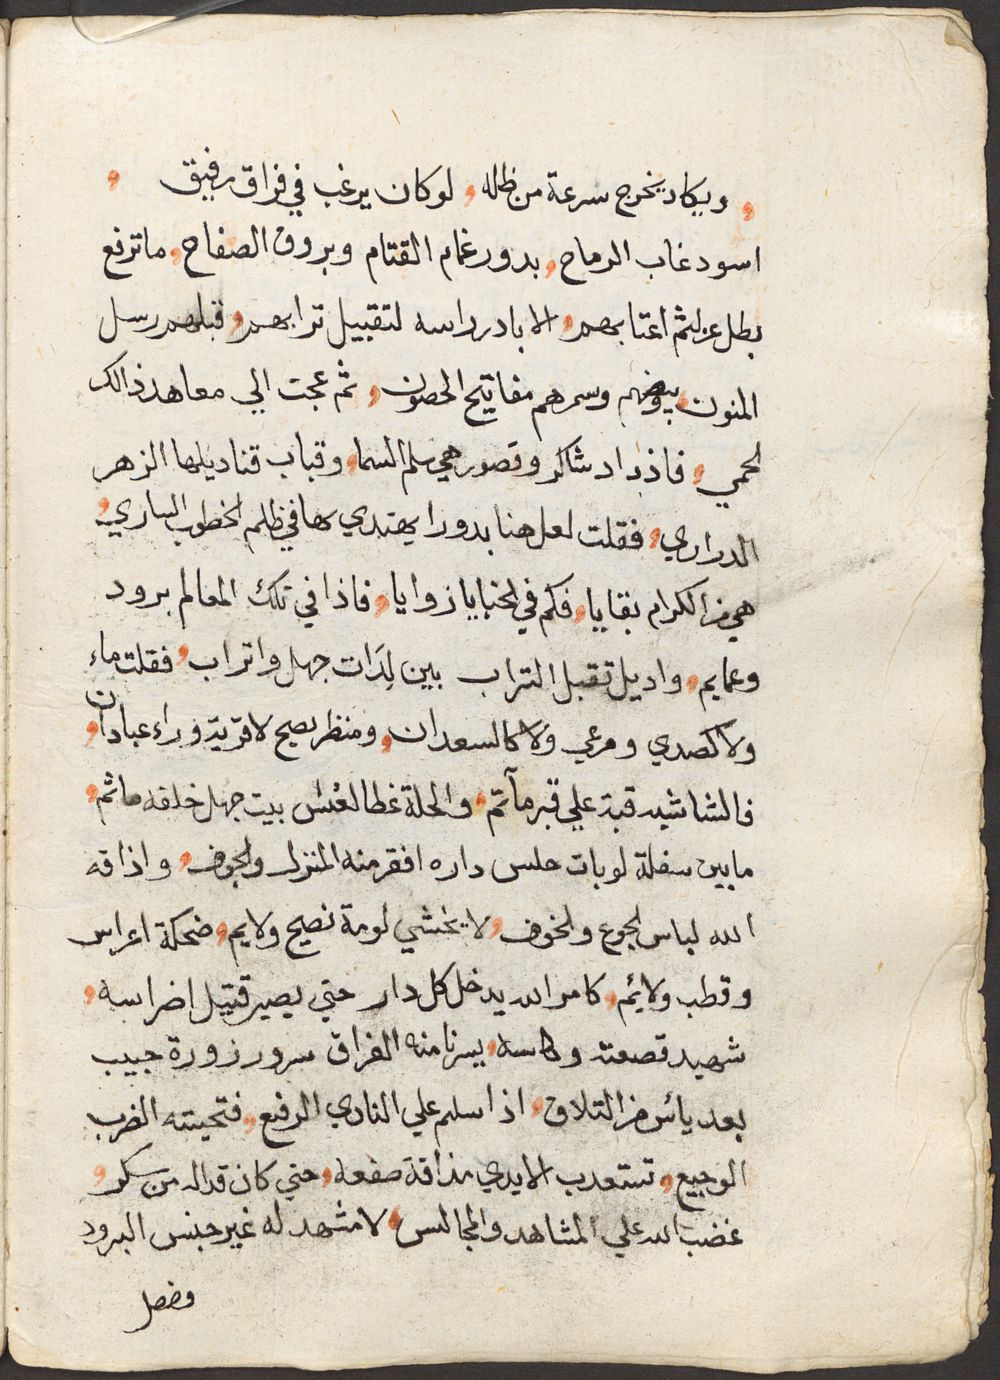 ، ويكاد يخرج سرعة من ظله ، لو كان يرغب في فراق رفيق ،
اسود غاب الرماح، بدور غمام القتام وبروق الصفاح، ما ترفع
بطل عن لثم اعتابهم، الا بادر راسه لتقبيل ترابهم، قبلهم رسل
المنون، بيضهم وسمرهم مفاتيح الحصون، ثم عجت الي معاهد ذالك
الحمي، فاذ داد شاكر وقصور هي سلم السما، وقباب قناديلها الزهر
الدراري، فقلت لعل هنا بدورا يهتدي بها في ظلم الخطوب الساري،
هي من الكرام بقايا، فكم في الخبايا زوايا، فاذا في تلك المعالم برود
وعمايم، واديل تقبل التراب بين لِدَات جهل واتراب، فقلت ماء
ولا كصدي ومرعي ولا كالسعدان، ومنظر بصبح لا قرية وراء عبادان،
فالشاشيه قبة علي قبر مآتم، والحلة غطا لغُش بيت جهل خلقه ماثم،
ما بين سفلة لو بات حلس داره افقر منه المنزل والجوف، واذاقه
الله لباس الجوع والخوف، لا يخشي لومة نصيح ولايم، ضحكة اعراس
وقطب ولائم، كامر الله يدخل كل دار حتي يصير قتيل اضراسه،
شهيد قصعته وكاسه، يسرنا منه الفراق سرور زورة حبيب
بعد يأس من التلاق، اذا سلم علي النادي الرفيع، فتحيته الضرب
الوجيع، تستعدب الايدي مذاقة صفعه، حتي كان قداله من سكر،
غضب الله علي المشاهد والمجالس، لا مشهد له غير جنس البرود
وفضل